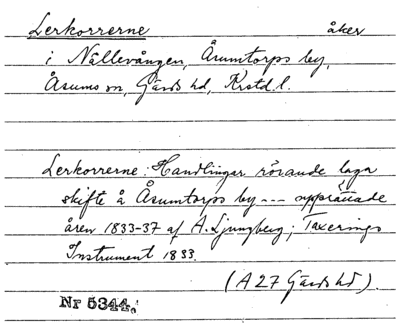 Lerkorrerne åker
i Nällevången, Årumtorps by,
Åsums sn, Gärds hd, Krstd. l.
Lerkorrerne: Handlingar rörande laga
skifte å Årumtorps by --- upprättade
åren 1833-37 af A. Ljungberg; Taxerings
Instrument 1833.
(A 27 Gärds hd).
Nr 5344.